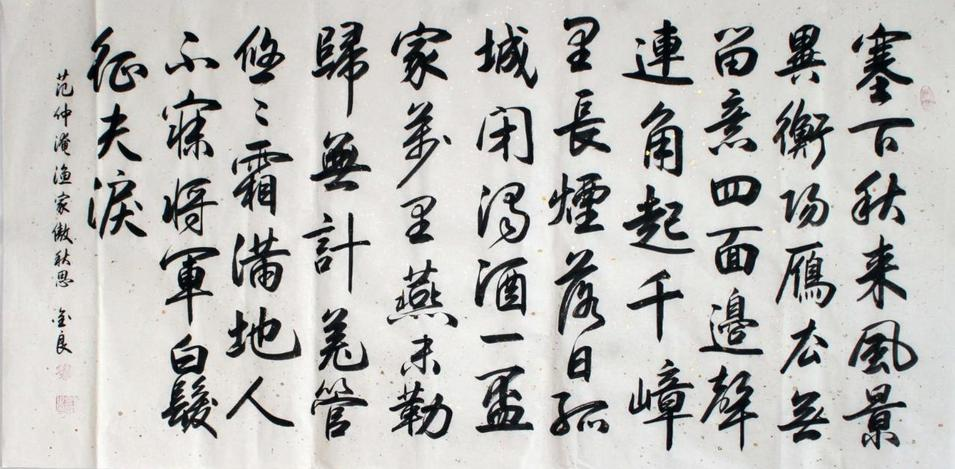 塞下秋来風景
異衡陽鴈去無
留意四面邊聲
連角起千嶂
里長煙落日孤
城閉濁酒一盃
家萬里燕未勒
歸無計羌管
悠々霜滿地人
不寐將軍白髮
征夫淚
范仲淹漁家傲秋思 金良